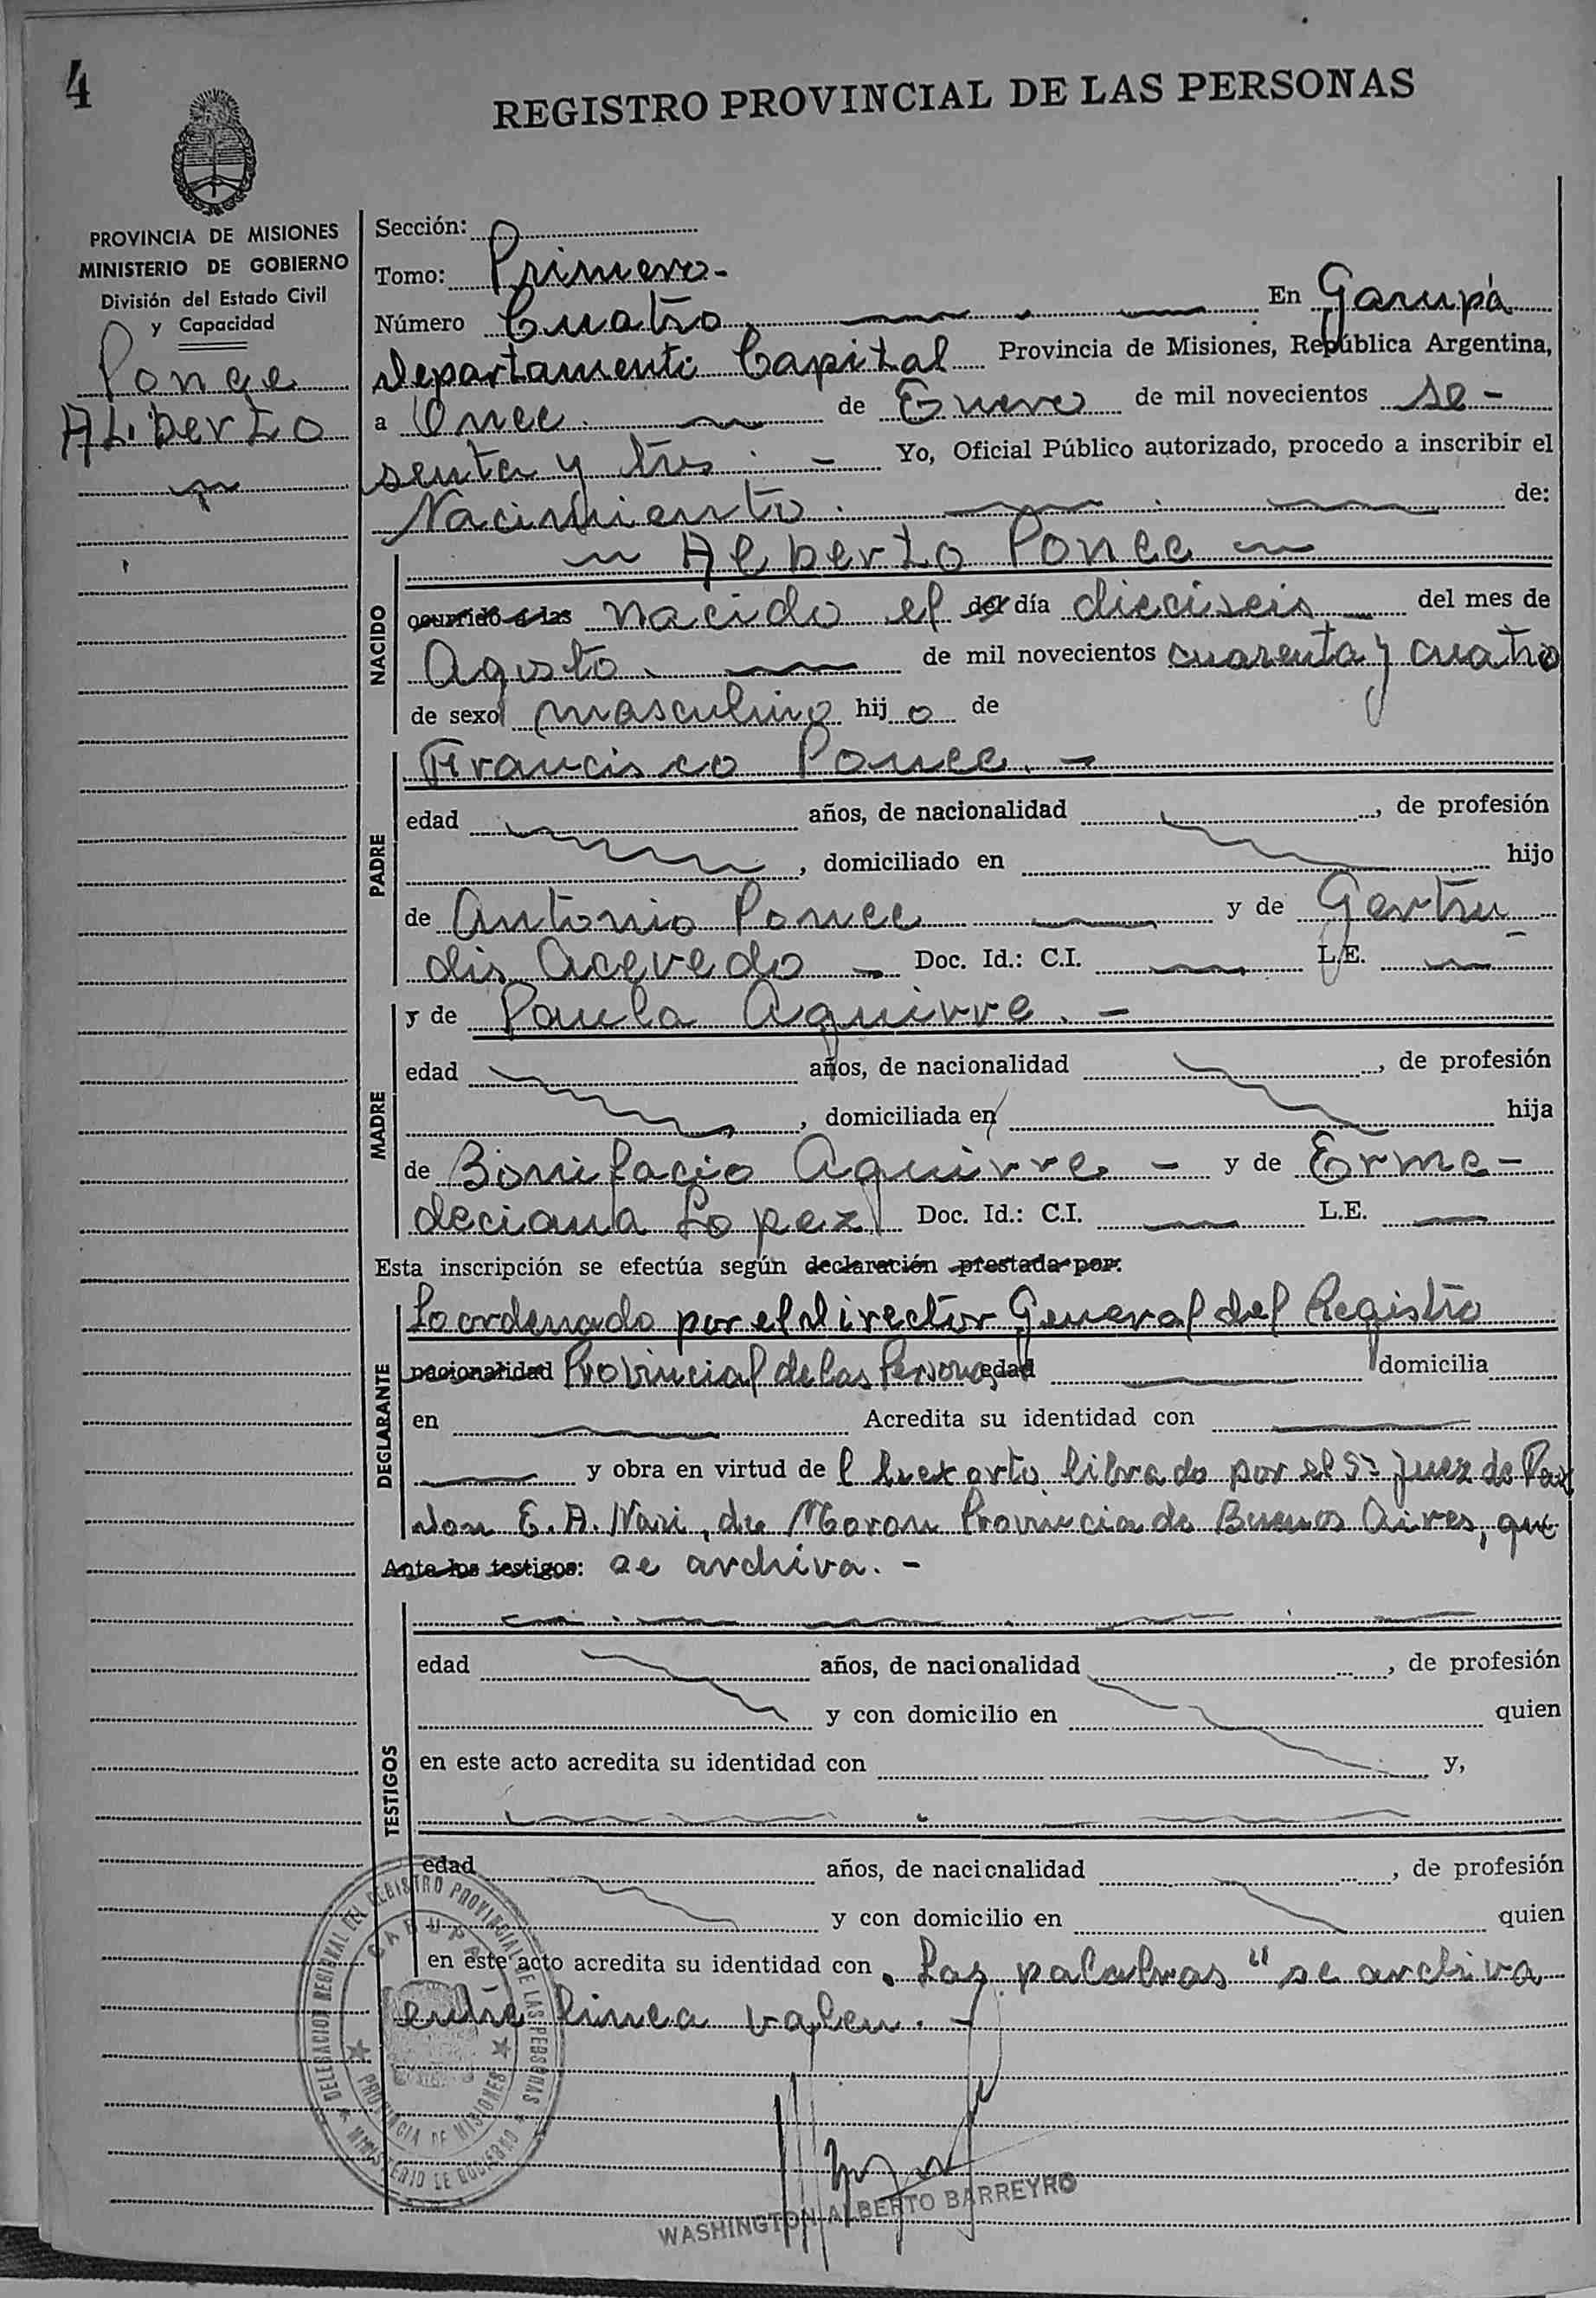 4
REGISTRO PROVINCIAL DE LAS PERSONAS
PROVINCIA DE MISIONES
MINISTERIO DE GOBIERNO
División del Estado Civil
y Capacidad
Ponce
Alberto
Sección:
Tomo: Primero-
Número Cuatro. En Garupá
departamento Capital Provincia de Misiones, República Argentina,
a Once. de Enero de mil novecientos se-
senta y tres. - Yo, Oficial Público autorizado, procedo a inscribir el
Nacimiento. de:
Alberto Ponce
NACIDO
ocurrido a las nacido el del día dieciseis del mes de
Agosto. de mil novecientos cuarenta y cuatro
de sexo masculino hijo de
Francisco Ponce. -
PADRE
edad años, de nacionalidad , de profesión
, domiciliado en hijo
de Antonio Ponce y de Gertru-
dis Acevedo Doc. Id.: C.I. L.E.
y de Paula Aguirre. -
MADRE
edad años, de nacionalidad , de profesión
, domiciliada en hija
de Bonifacio Aguirre - y de Erme-
deciana Lopez Doc. Id.: C.I. L.E.
Esta inscripción se efectúa según declaración prestada por:
DEGLARANTE
Lo ordenado por el director General del Registro
nacionalidad Provincial de las Personas edad domicilia
en Acredita su identidad con
y obra en virtud de l librado por el Sr Juez de Paz
don E. A. Nari, de Moron Provincia de Buenos Aires, que
Ante los testigos: se archiva. -
TESTIGOS
edad años, de nacionalidad , de profesión
y con domicilio en quien
en este acto acredita su identidad con y,
edad años, de nacicnalidad , de profesión
y con domicilio en quien
en este acto acredita su identidad con . Las palabras " se archiva
entre linea valen. -
DELEGACION REGIONAL DEL REGISTRO PROVINCIAL DE LAS PERSONAS
GARUPA
PROVINCIA DE MISIONES
MINISTERIO DE GOBIERNO
WASHINGTON ALBERTO BARREYRO